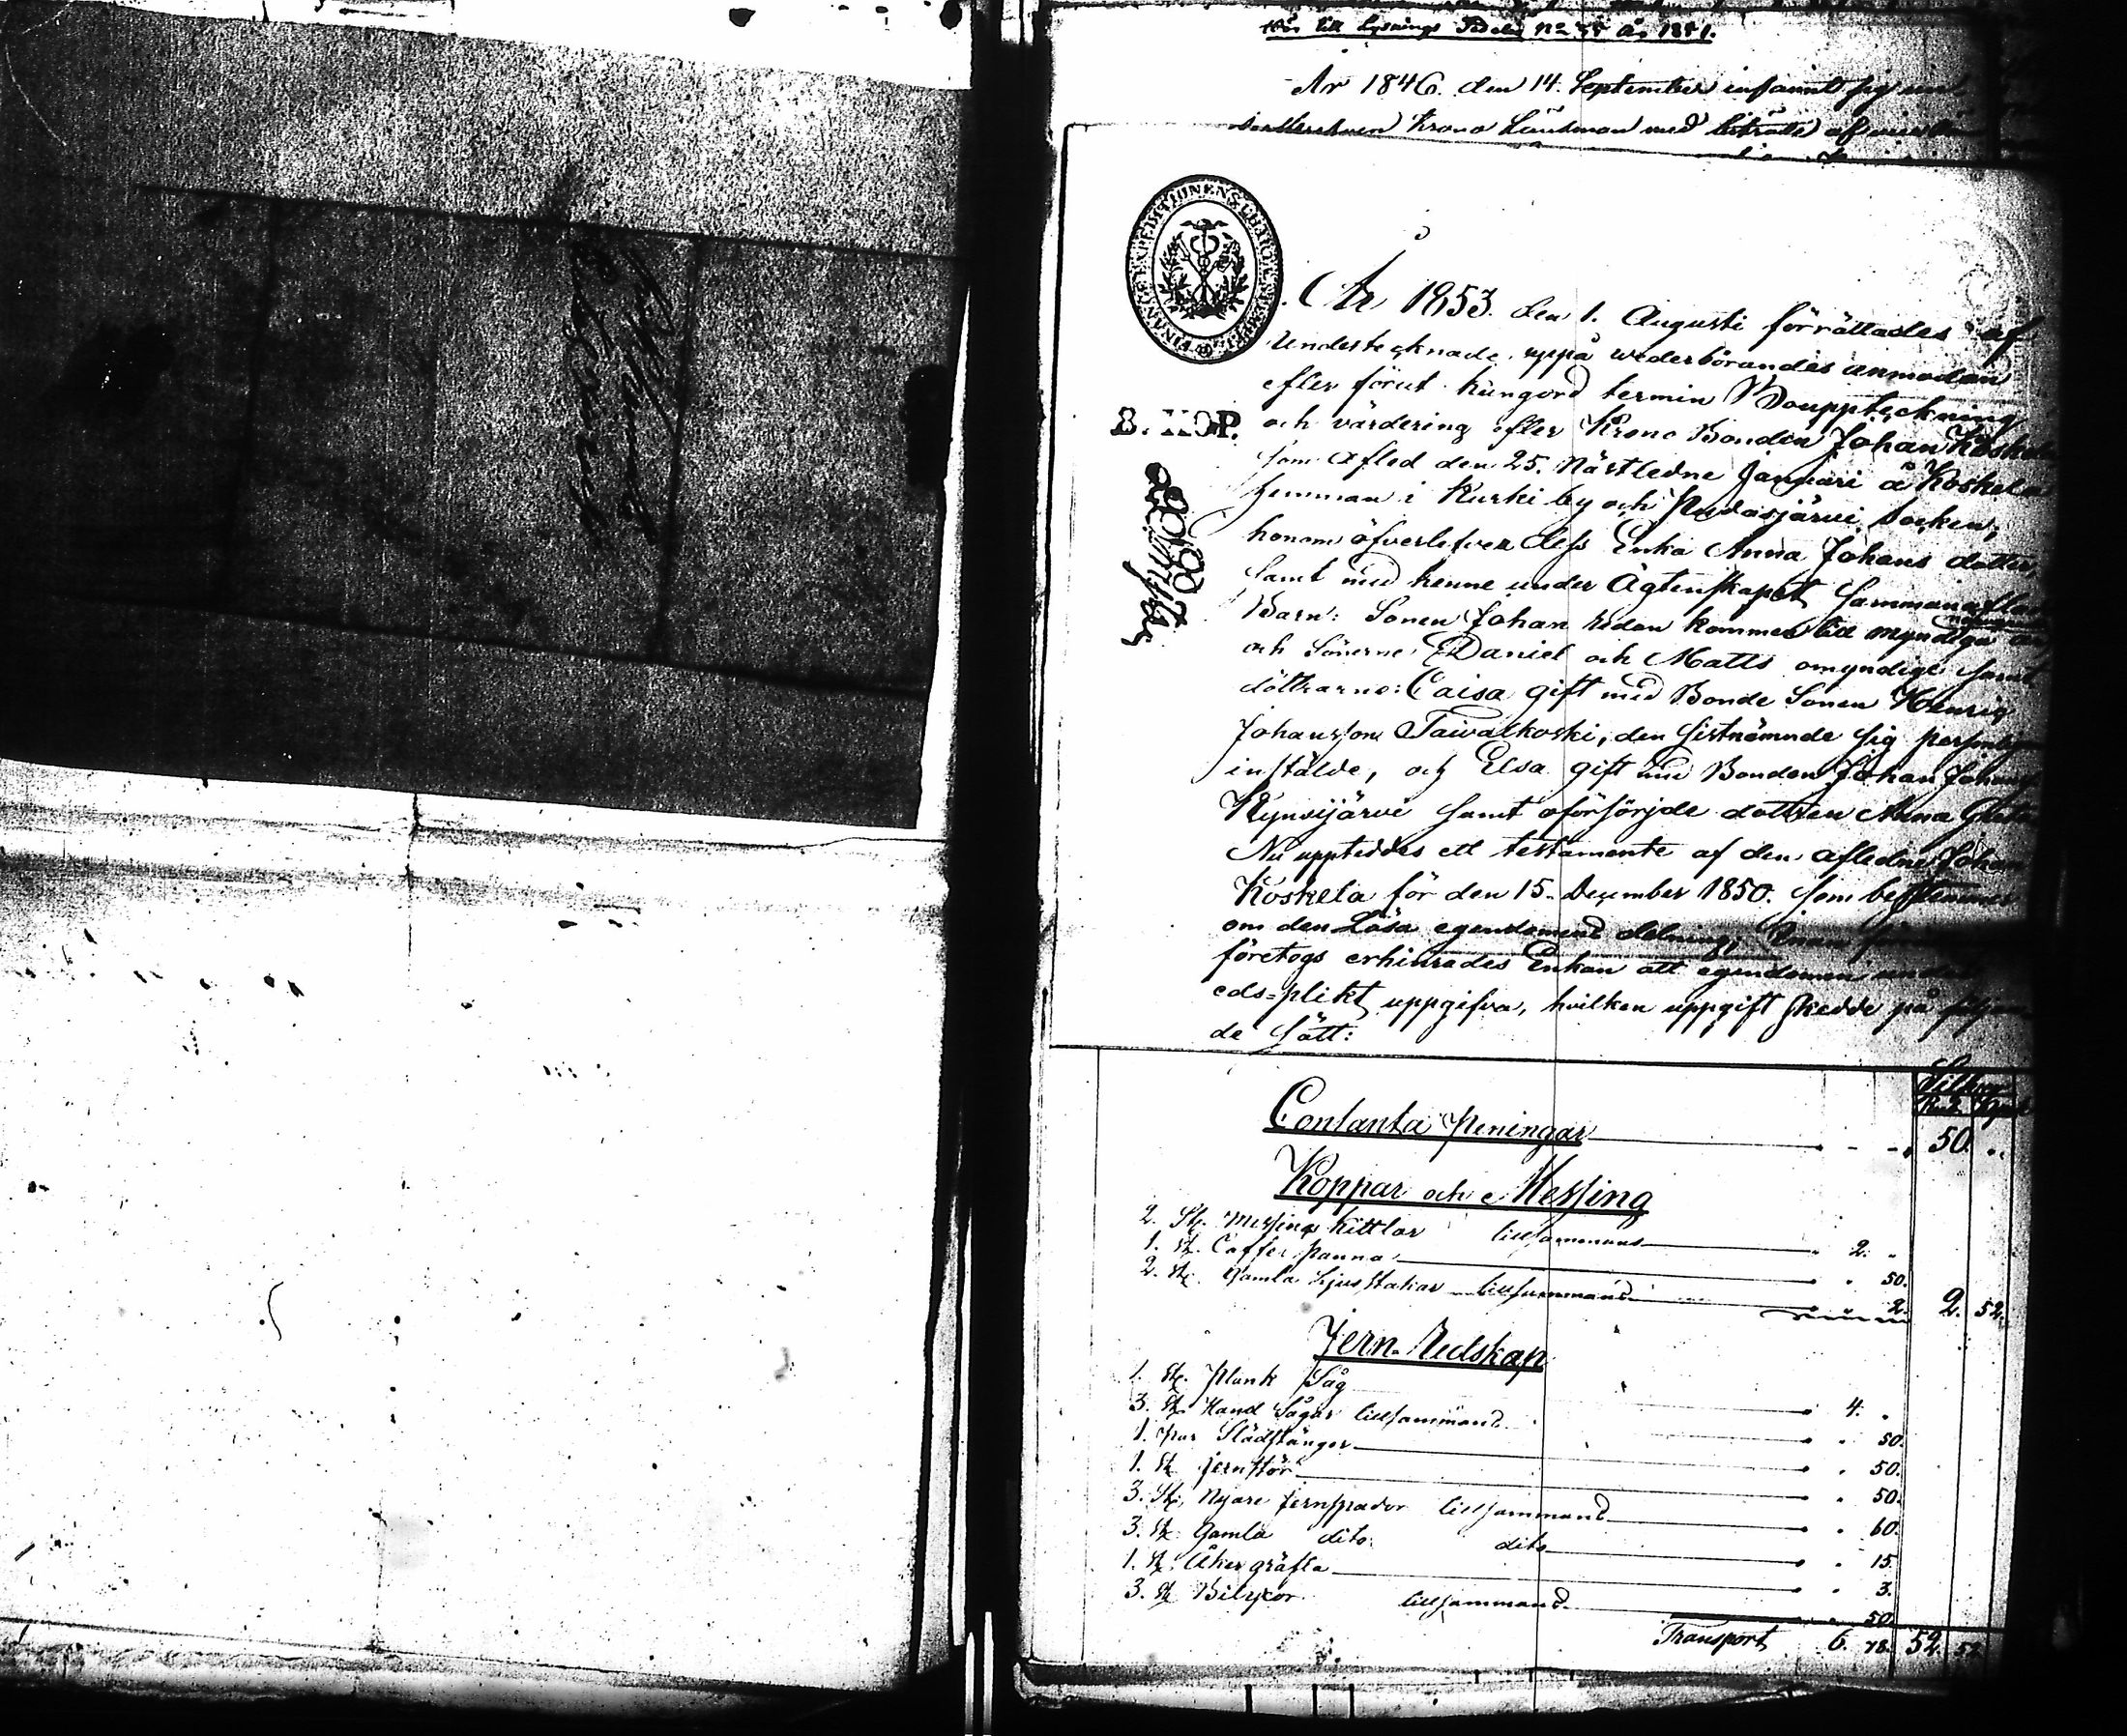 År 1846 den 14 September infann sig
Krono Länsman med biträde af
FINANCE EXPEDITIONENS CHARTÆ
År 1853 den 1. Augusti förrättades af
Undertecknade, uppå wederbörandes anmodan
efter förut kungord termin Bouppteckning
B. KOP.
och värdering efter Krono Bonden Johan Koskela
som afled den 25. Nästledne Januari å Koskela
hemman i Kurki by och Pudasjärvi Socken,
honom öfverlefver dess Enka Anna Johans dotter,
samt med henne under Ägtenskapet Sammanaflade
Barn: Sonen Johan redan kommen till myndiga år
och Sönerne Daniel och Matts omyndige samt
döttrarne: Caisa gift med Bonde Sonen Henrig
Johansson Taivalkoski, den sistnämnde sig personligen
instälde, och Elsa gift med Bonden Johan Johans
Kynsijärvi samt oförsörjde dottren Anna Greta
Nu uppteddes ett testamente af den afledne Johan
Koskela för den 15. December 1850. som bestämmer
om den Lösa egendomens delning,
företogs erhinrades Enkan att egendomen under
eds=plikt uppgifva, hvilken uppgift skedde på följan
de sätt:
Silfver
Rub. Kop.
Contanta Peningar 50. ..
Koppar och Messing
2. St. Messing Kittlar tillsammans 2. "
1. St. Caffer panna " 50.
2. St. Gamla Ljus stakar tillsammans " 2. 2. 52.
Jern-Redskap
1. St. Plank Såg 4. "
3. St. Hand Sågar tillsammans " 50.
1. Par Slädstänger " 50.
1. St. Jernstör " 50.
3. St. Nyare Jernspador tillsammans " 60.
3. St. Gamla dito dito " 15.
1. St. Åker gräfta " 3.
3. St. Bilyxor tillsammans " 50.
Transport 6. 78. 52. 52.